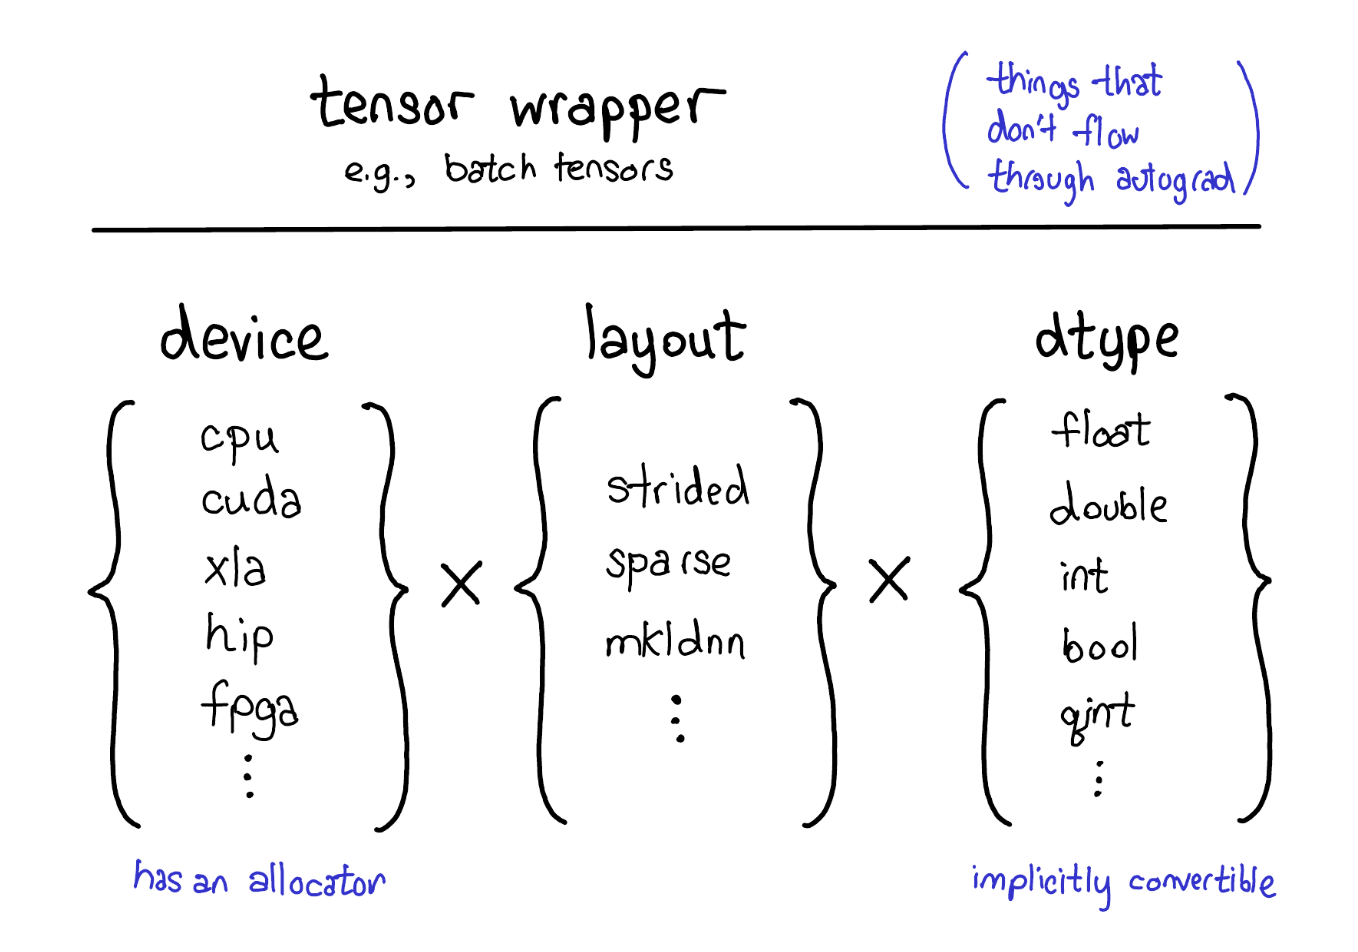 tensor wrapper
e.g., batch tensors
(things that
don't flow
through autograd)
device
layout
dtype
cpu
cuda
xla
hip
fpga
⋮
×
strided
sparse
mkldnn
⋮
×
float
double
int
bool
qint
⋮
has an allocator
implicitly convertible